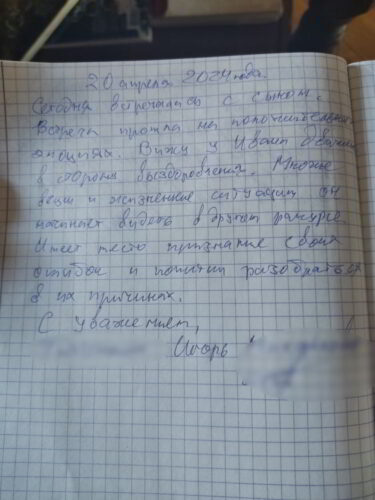 20 апреля 2024 года.
Сегодня встречались с сыном.
Встреча прошла на положительных
эмоциях. Вижу у Ивана движение
в сторону выздоровления. Многие
вещи и жизненные ситуации он
начинает видеть в другом ракурсе.
Имеет место признание своих
ошибок и попытки разобраться
в их причинах.
С уважением,
Игорь